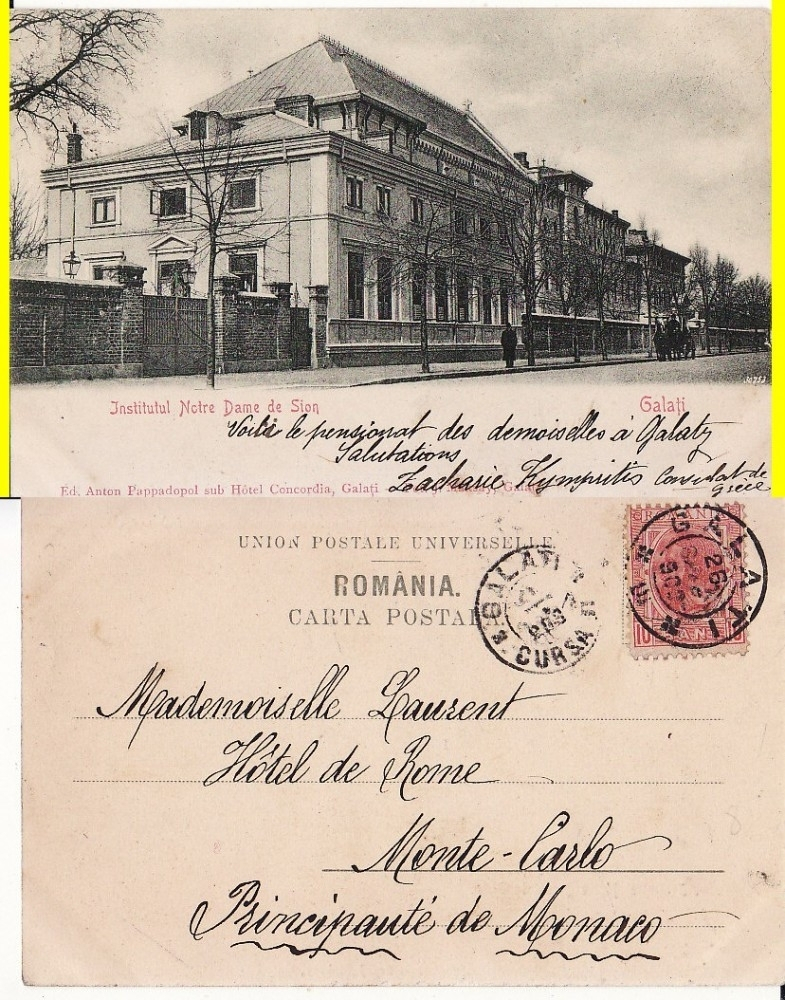 30253
Institutul Notre Dame de Sion
Galați
Voilà le pensionat des demoiselles à Galatz
Salutations
Zacharie Kympritis Consulat de
Grèce
Ed. Anton Pappadopol sub Hôtel Concordia, Galați
UNION POSTALE UNIVERSELLE
ROMÂNIA.
CARTA POSTALA.
GALATI
CURSA II
GALATI
ROMANIA
10 BANI 10
Mademoiselle Laurent
Hôtel de Rome
Monte-Carlo
Principauté de Monaco